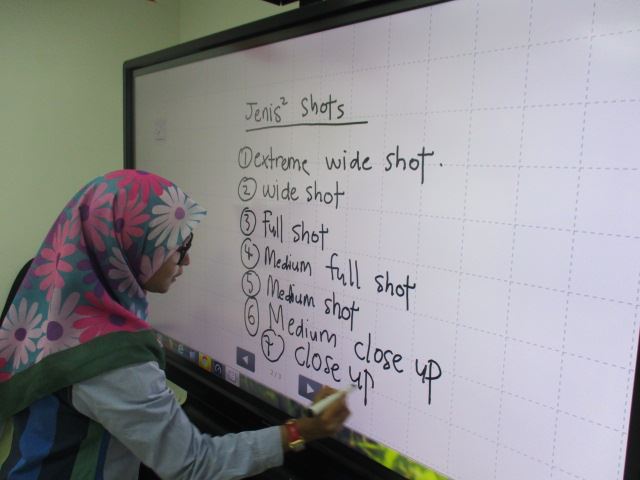 Jenis² shots
① extreme wide shot.
② wide shot
③ full shot
④ Medium full shot
⑤ Medium shot
⑥ Medium close up
⑦ close up
2/3